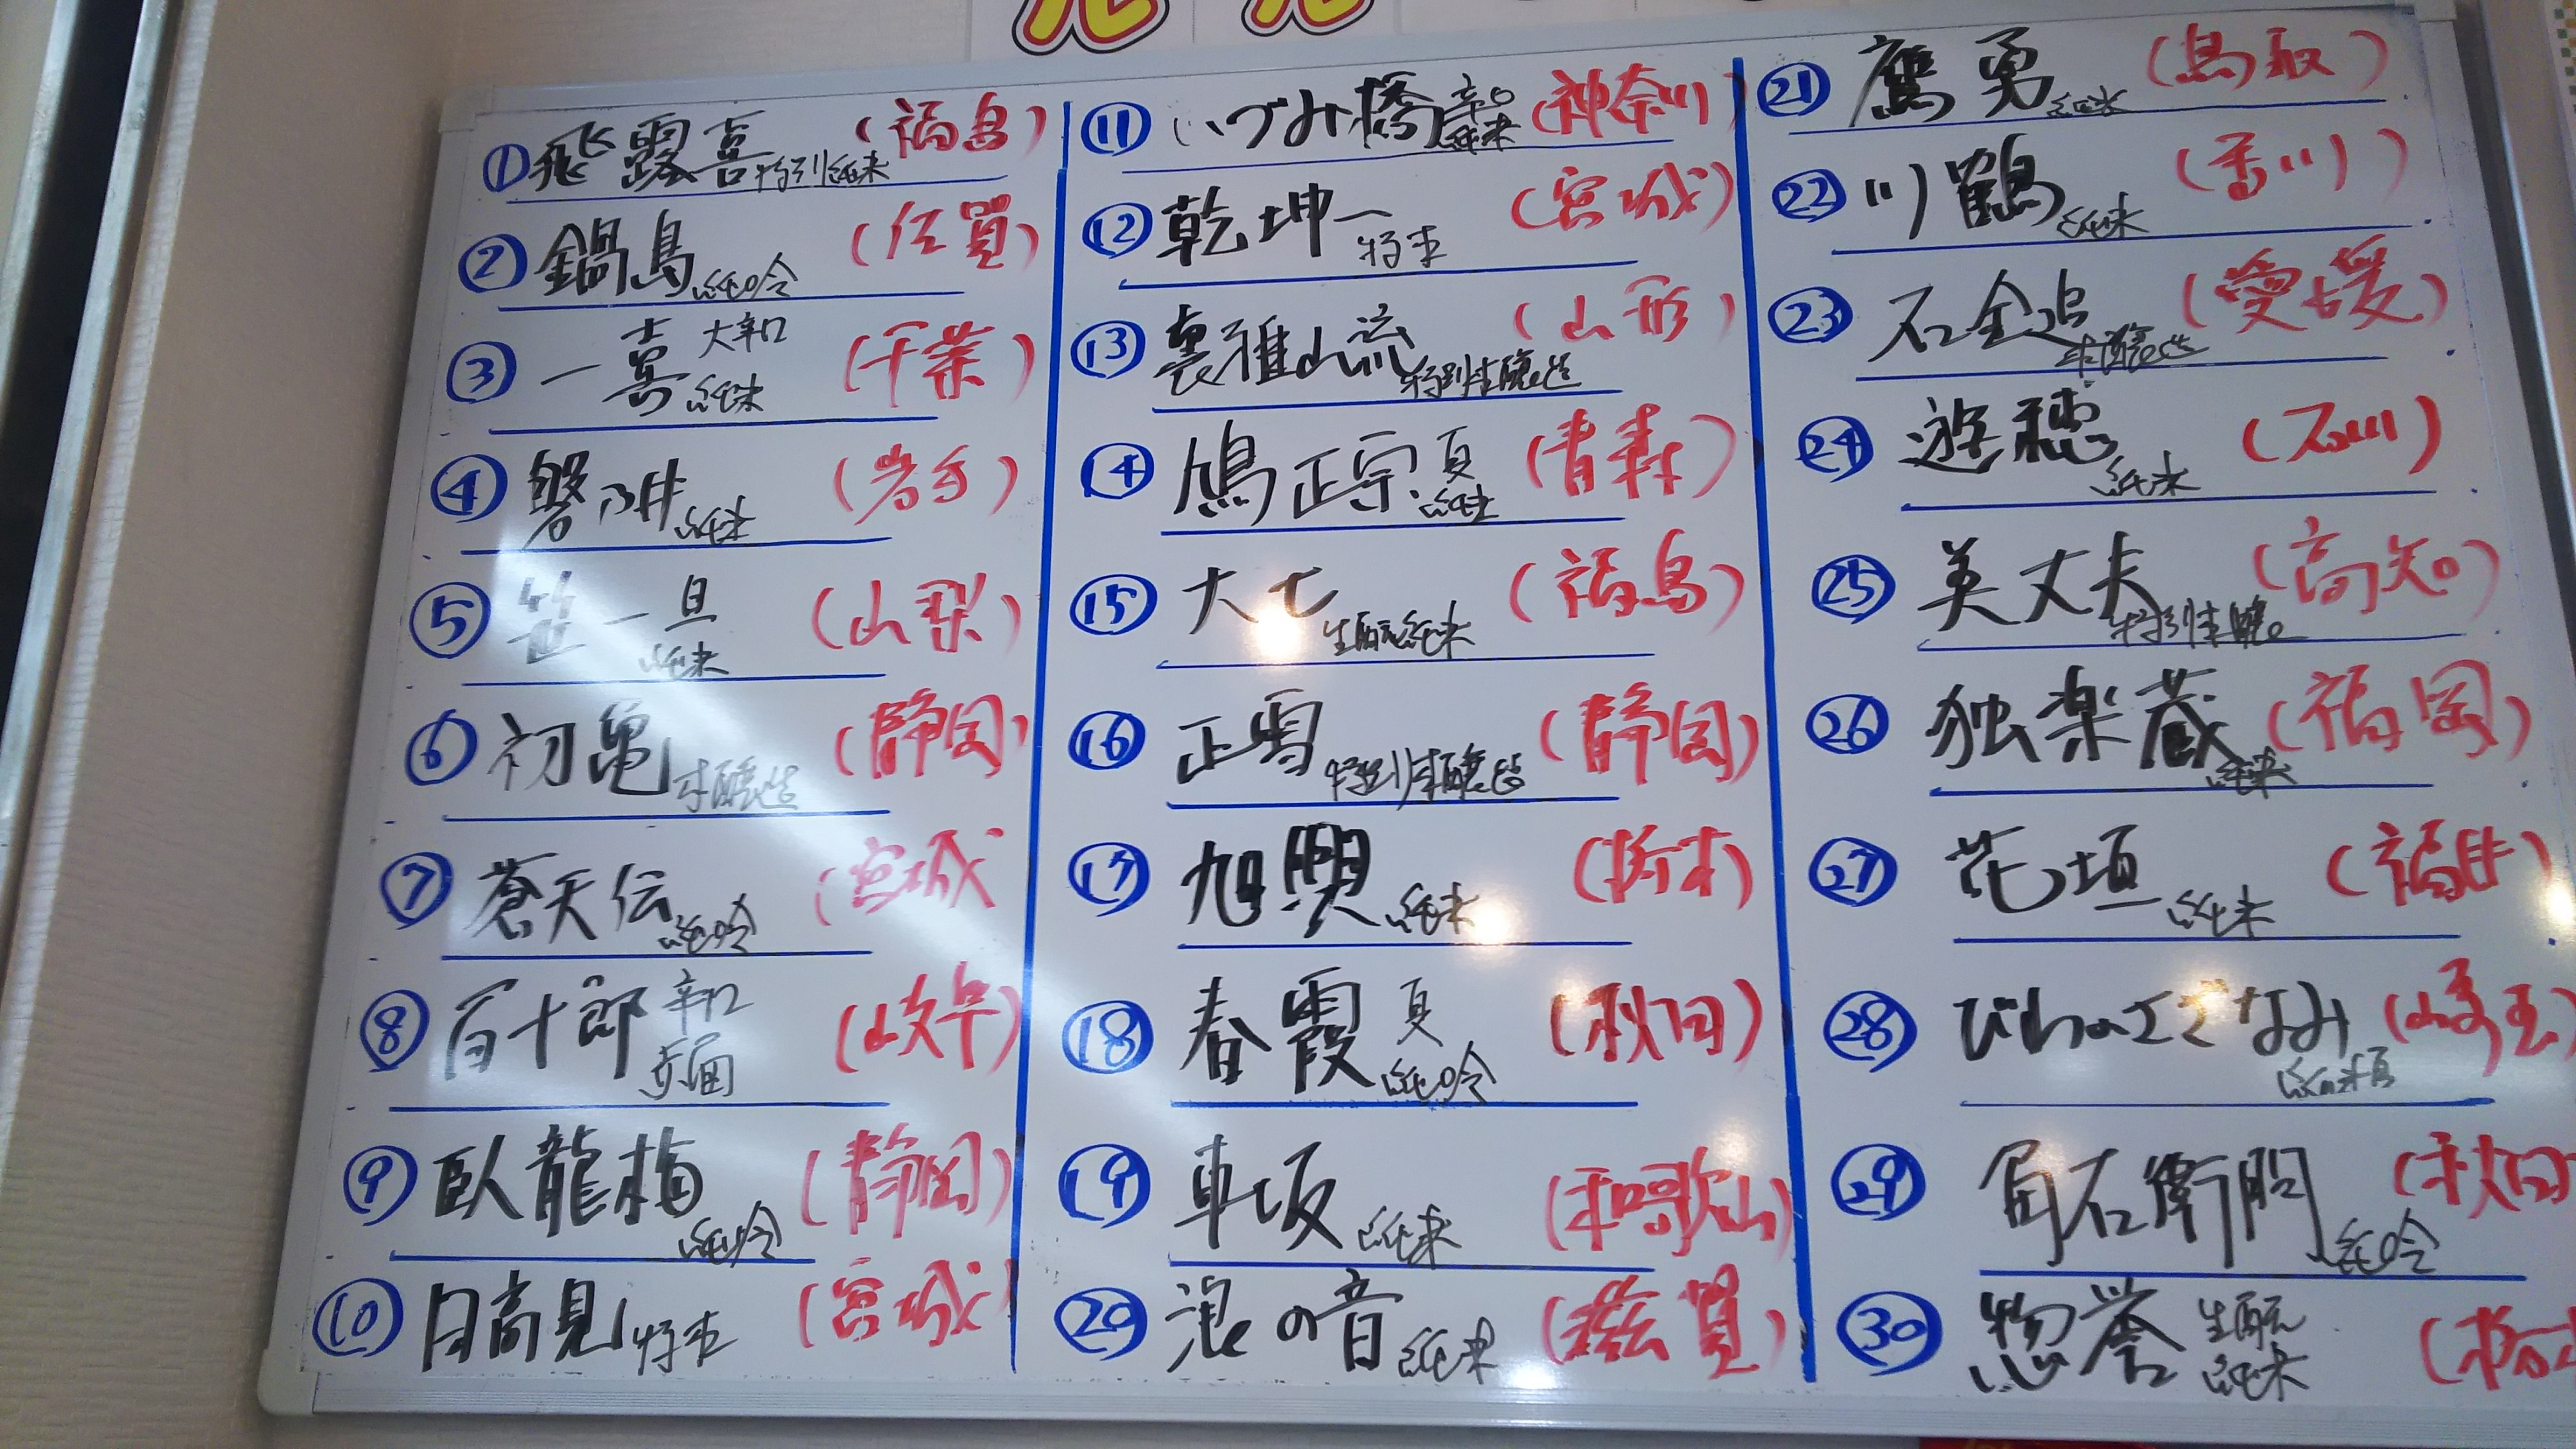 ① 飛露喜 特別純米 (福島)
② 鍋島 純吟 (佐賀)
③ 一喜 大辛口 純米 (千葉)
④ 磐乃井 純米 (岩手)
⑤ 笹一 旦 純米 (山梨)
⑥ 初亀 本醸造 (静岡)
⑦ 蒼天伝 純吟 (宮城)
⑧ 百十郎 辛口 赤面 (岐阜)
⑨ 臥龍梅 純吟 (静岡)
⑩ 日高見 特本 (宮城)
⑪ いづみ橋 辛口 純米 (神奈川)
⑫ 乾坤一 特本 (宮城)
⑬ 裏雅山流 特別本醸造 (山形)
⑭ 鳩正宗 夏 純米 (青森)
⑮ 大七 生酛純米 (福島)
⑯ 正雪 特別本醸造 (静岡)
⑰ 旭興 純米 (栃木)
⑱ 春霞 夏 純吟 (秋田)
⑲ 車坂 純米 (和歌山)
⑳ 浪の音 純米 (滋賀)
㉑ 鷹勇 純米 (鳥取)
㉒ 川鶴 純米 (香川)
㉓ 石鎚 本醸造 (愛媛)
㉔ 遊穂 純米 (石川)
㉕ 美丈夫 特別本醸 (高知)
㉖ 独楽蔵 純米 (福岡)
㉗ 花垣 純米 (福井)
㉘ びわのさざなみ (埼玉)
㉙ 角右衛門 純吟 (秋田
㉚ 惣誉 生酛 純米 (栃木